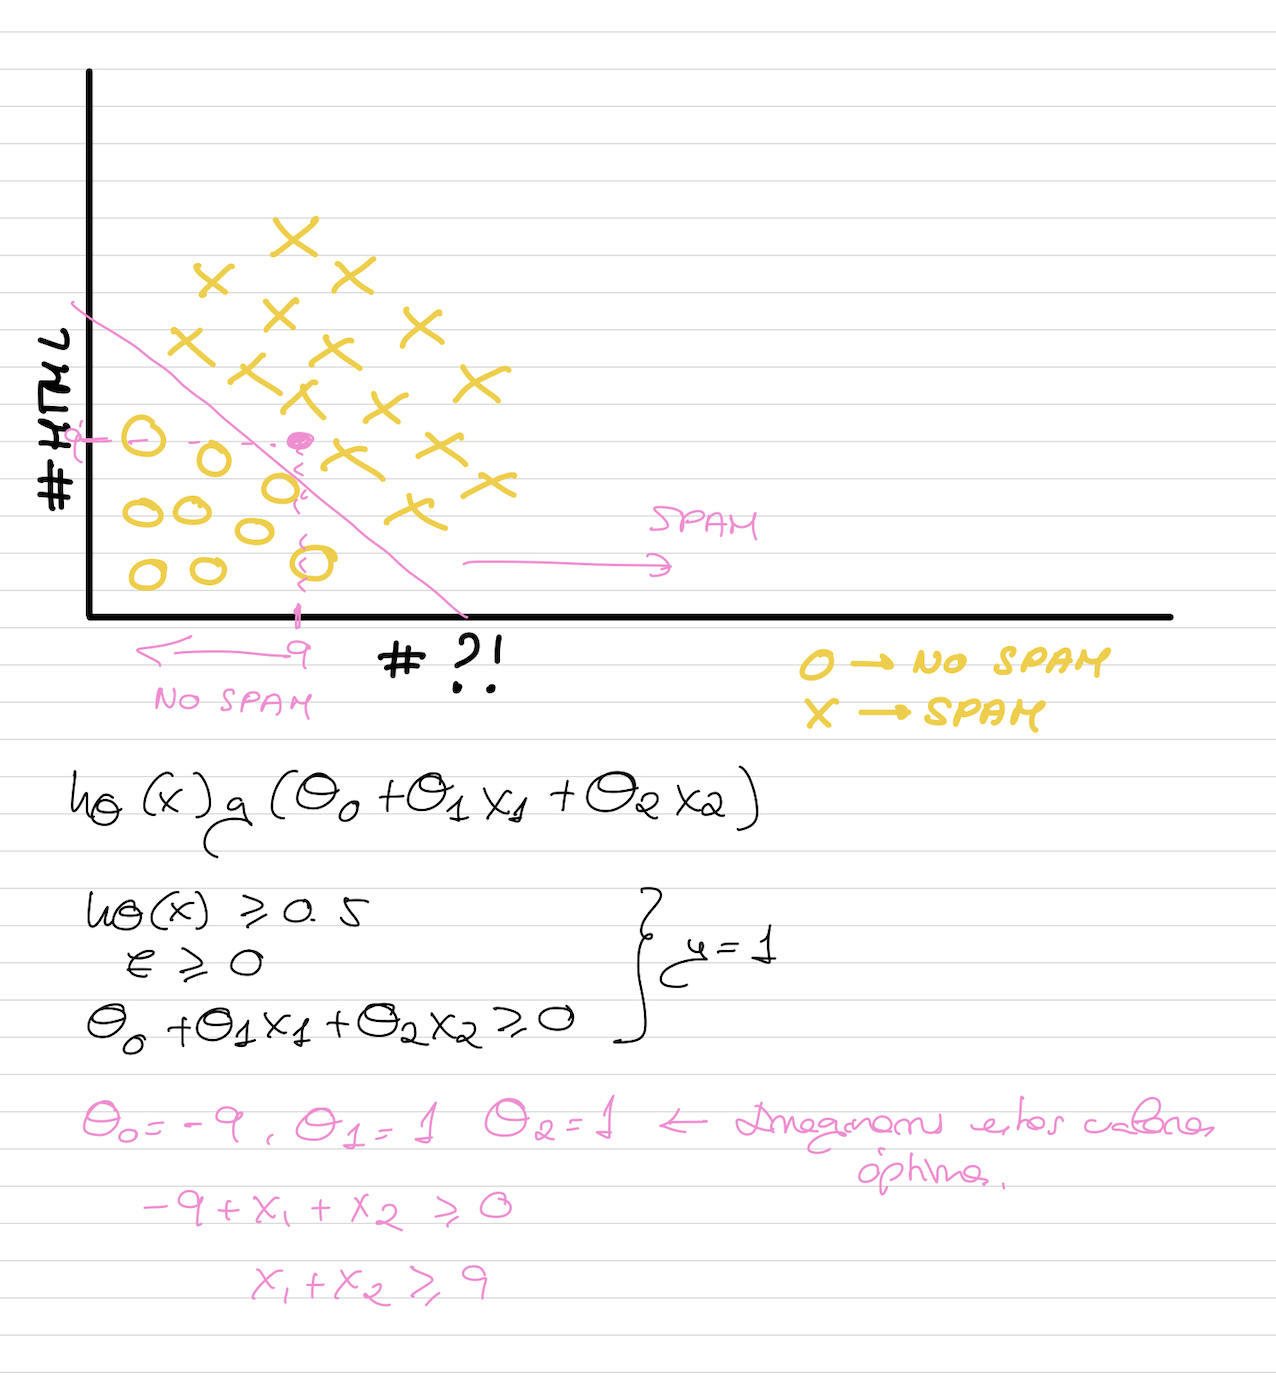 # HTML
9
SPAM
9
# ?!
NO SPAM
O → NO SPAM
X → SPAM
hθ(x) g(θ₀ + θ₁x₁ + θ₂x₂)
hθ(x) ≥ 0.5
z ≥ 0
θ₀ + θ₁x₁ + θ₂x₂ ≥ 0
} y = 1
θ₀ = -9, θ₁ = 1 θ₂ = 1 ← Imaginamos estos valores
óptimos.
-9 + x₁ + x₂ ≥ 0
x₁ + x₂ ≥ 9